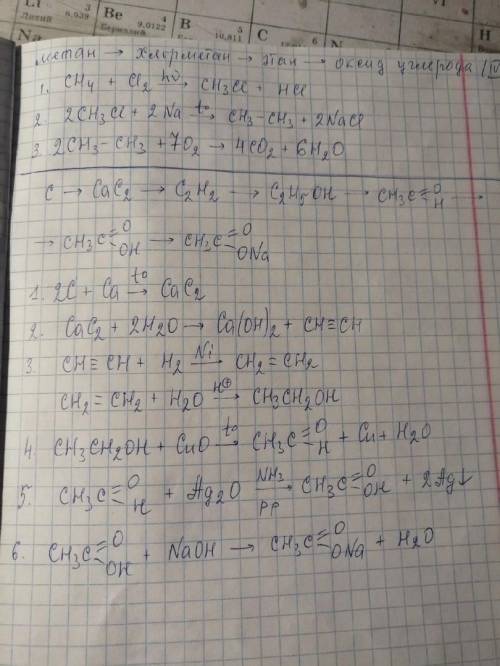 Li 3
Литий 6,939
Be 4
Бериллий 9,0122
B 5
10,811
C 6
H
Na
метан → хлорметан → этан → оксид углерода (IV
1. CH4 + Cl2 hν→ CH3Cl + HCl
2. 2CH3Cl + 2Na t°→ CH3-CH3 + 2NaCl
3. 2CH3-CH3 + 7O2 → 4CO2 + 6H2O
C → CaC2 → C2H2 → C2H5OH → CH3C=O H →
→ CH3C=O OH → CH3C=O ONa
1. 2C + Ca t°→ CaC2
2. CaC2 + 2H2O → Ca(OH)2 + CH≡CH
3. CH≡CH + H2 Ni→ CH2=CH2
CH2=CH2 + H2O H⊕→ CH3CH2OH
4 CH3CH2OH + CuO t°→ CH3C=O H + Cu + H2O
5. CH3C=O H + Ag2O NH3 рр→ CH3C=O OH + 2Ag↓
6. CH3C=O OH + NaOH → CH3C=O ONa + H2O